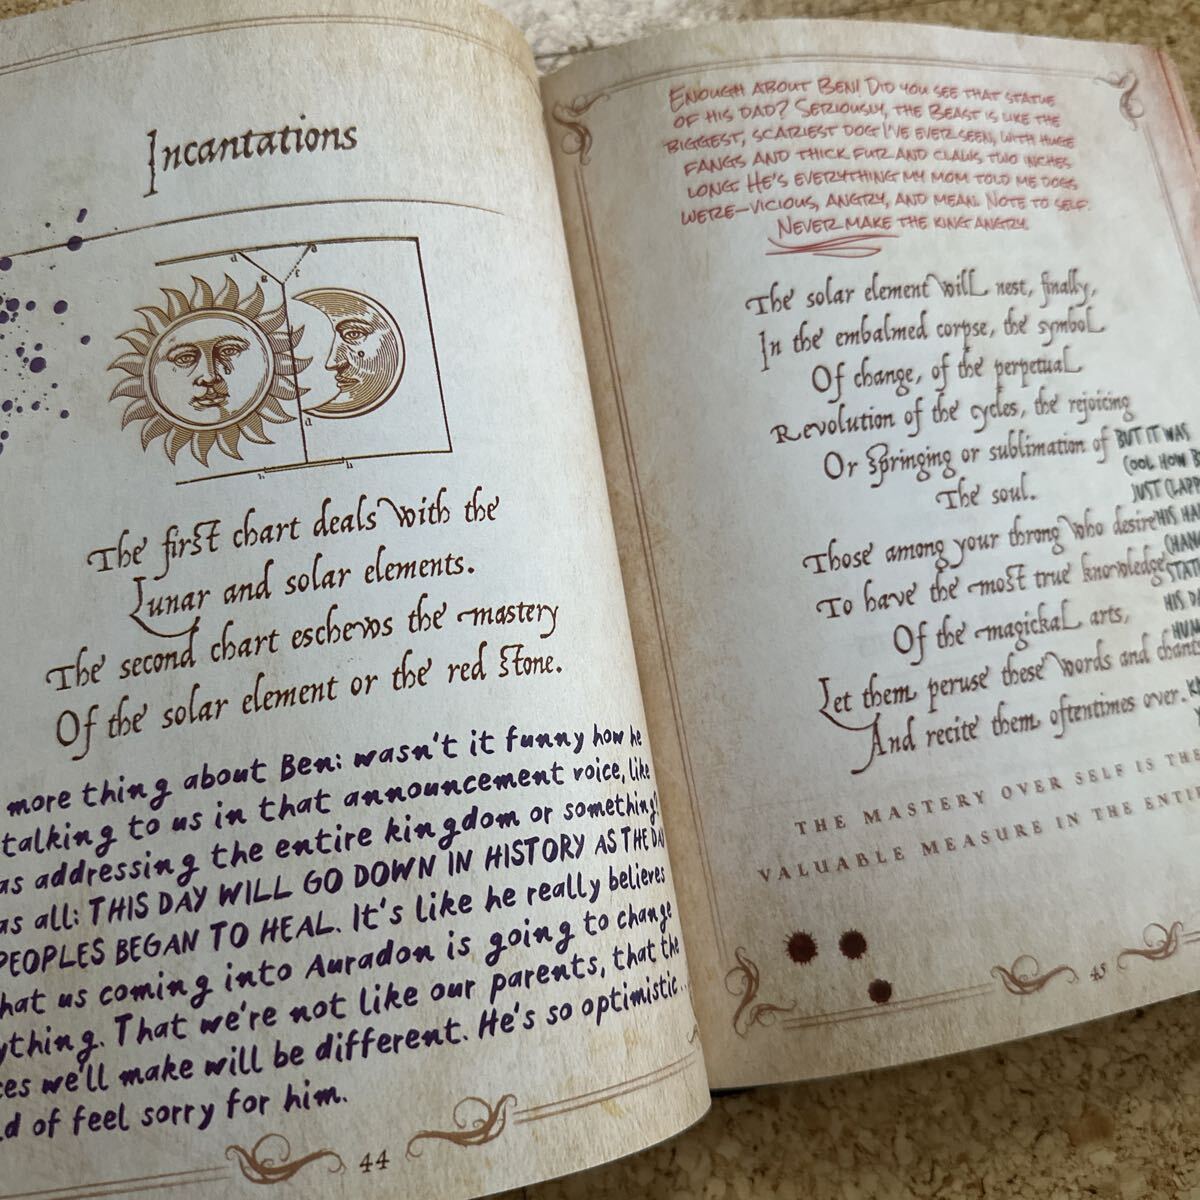 Incantations
The first chart deals with the
Lunar and solar elements.
The second chart eschews the mastery
Of the solar element or the red stone.
more thing about Ben: wasn't it funny how he
talking to us in that announcement voice, like
as addressing the entire kingdom or something?
as all: THIS DAY WILL GO DOWN IN HISTORY AS THE DAY
PEOPLES BEGAN TO HEAL. It's like he really believes
hat us coming into Auradon is going to change
ything. That we're not like our parents, that the
ces we'll make will be different. He's so optimistic...
d of feel sorry for him.
44
ENOUGH ABOUT BEN! DID YOU SEE THAT STATUE
OF HIS DAD? SERIOUSLY, THE BEAST IS LIKE THE
BIGGEST, SCARIEST DOG I'VE EVER SEEN, WITH HUGE
FANGS AND THICK FUR AND CLAWS TWO INCHES
LONG. HE'S EVERYTHING MY MOM TOLD ME DOGS
WERE—VICIOUS, ANGRY, AND MEAN. NOTE TO SELF:
NEVER MAKE THE KING ANGRY.
The solar element will nest, finally,
In the embalmed corpse, the symbol
Of change, of the perpetual
Revolution of the cycles, the rejoicing
Or springing or sublimation of
The soul.
BUT IT WAS
COOL HOW B
JUST CLAPP
HIS HA
CHANG
STAT
HIS DA
HUM
Those among your throng who desire
To have the most true knowledge
Of the magickal arts,
Let them peruse these words and chants
And recite them oftentimes over.
THE MASTERY OVER SELF IS THE
VALUABLE MEASURE IN THE ENTI
45